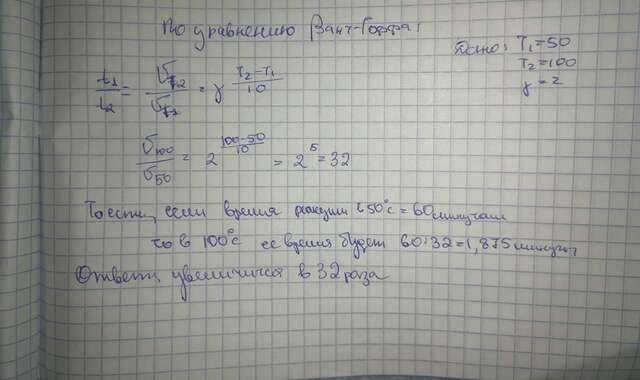 По уравнению Вант-Гоффа:
Дано: T₁=50
T₂=100
γ=2
t₁/t₂ = υ_T₂/υ_T₁ = γ^((T₂-T₁)/10)
υ₁₀₀/υ₅₀ = 2^((100-50)/10) = 2⁵ = 32
То есть, если время реакции t 50°с = 60 минутам
то в 100°с ее время будет 60:32=1,875 минут,
Ответ: увеличится в 32 раза